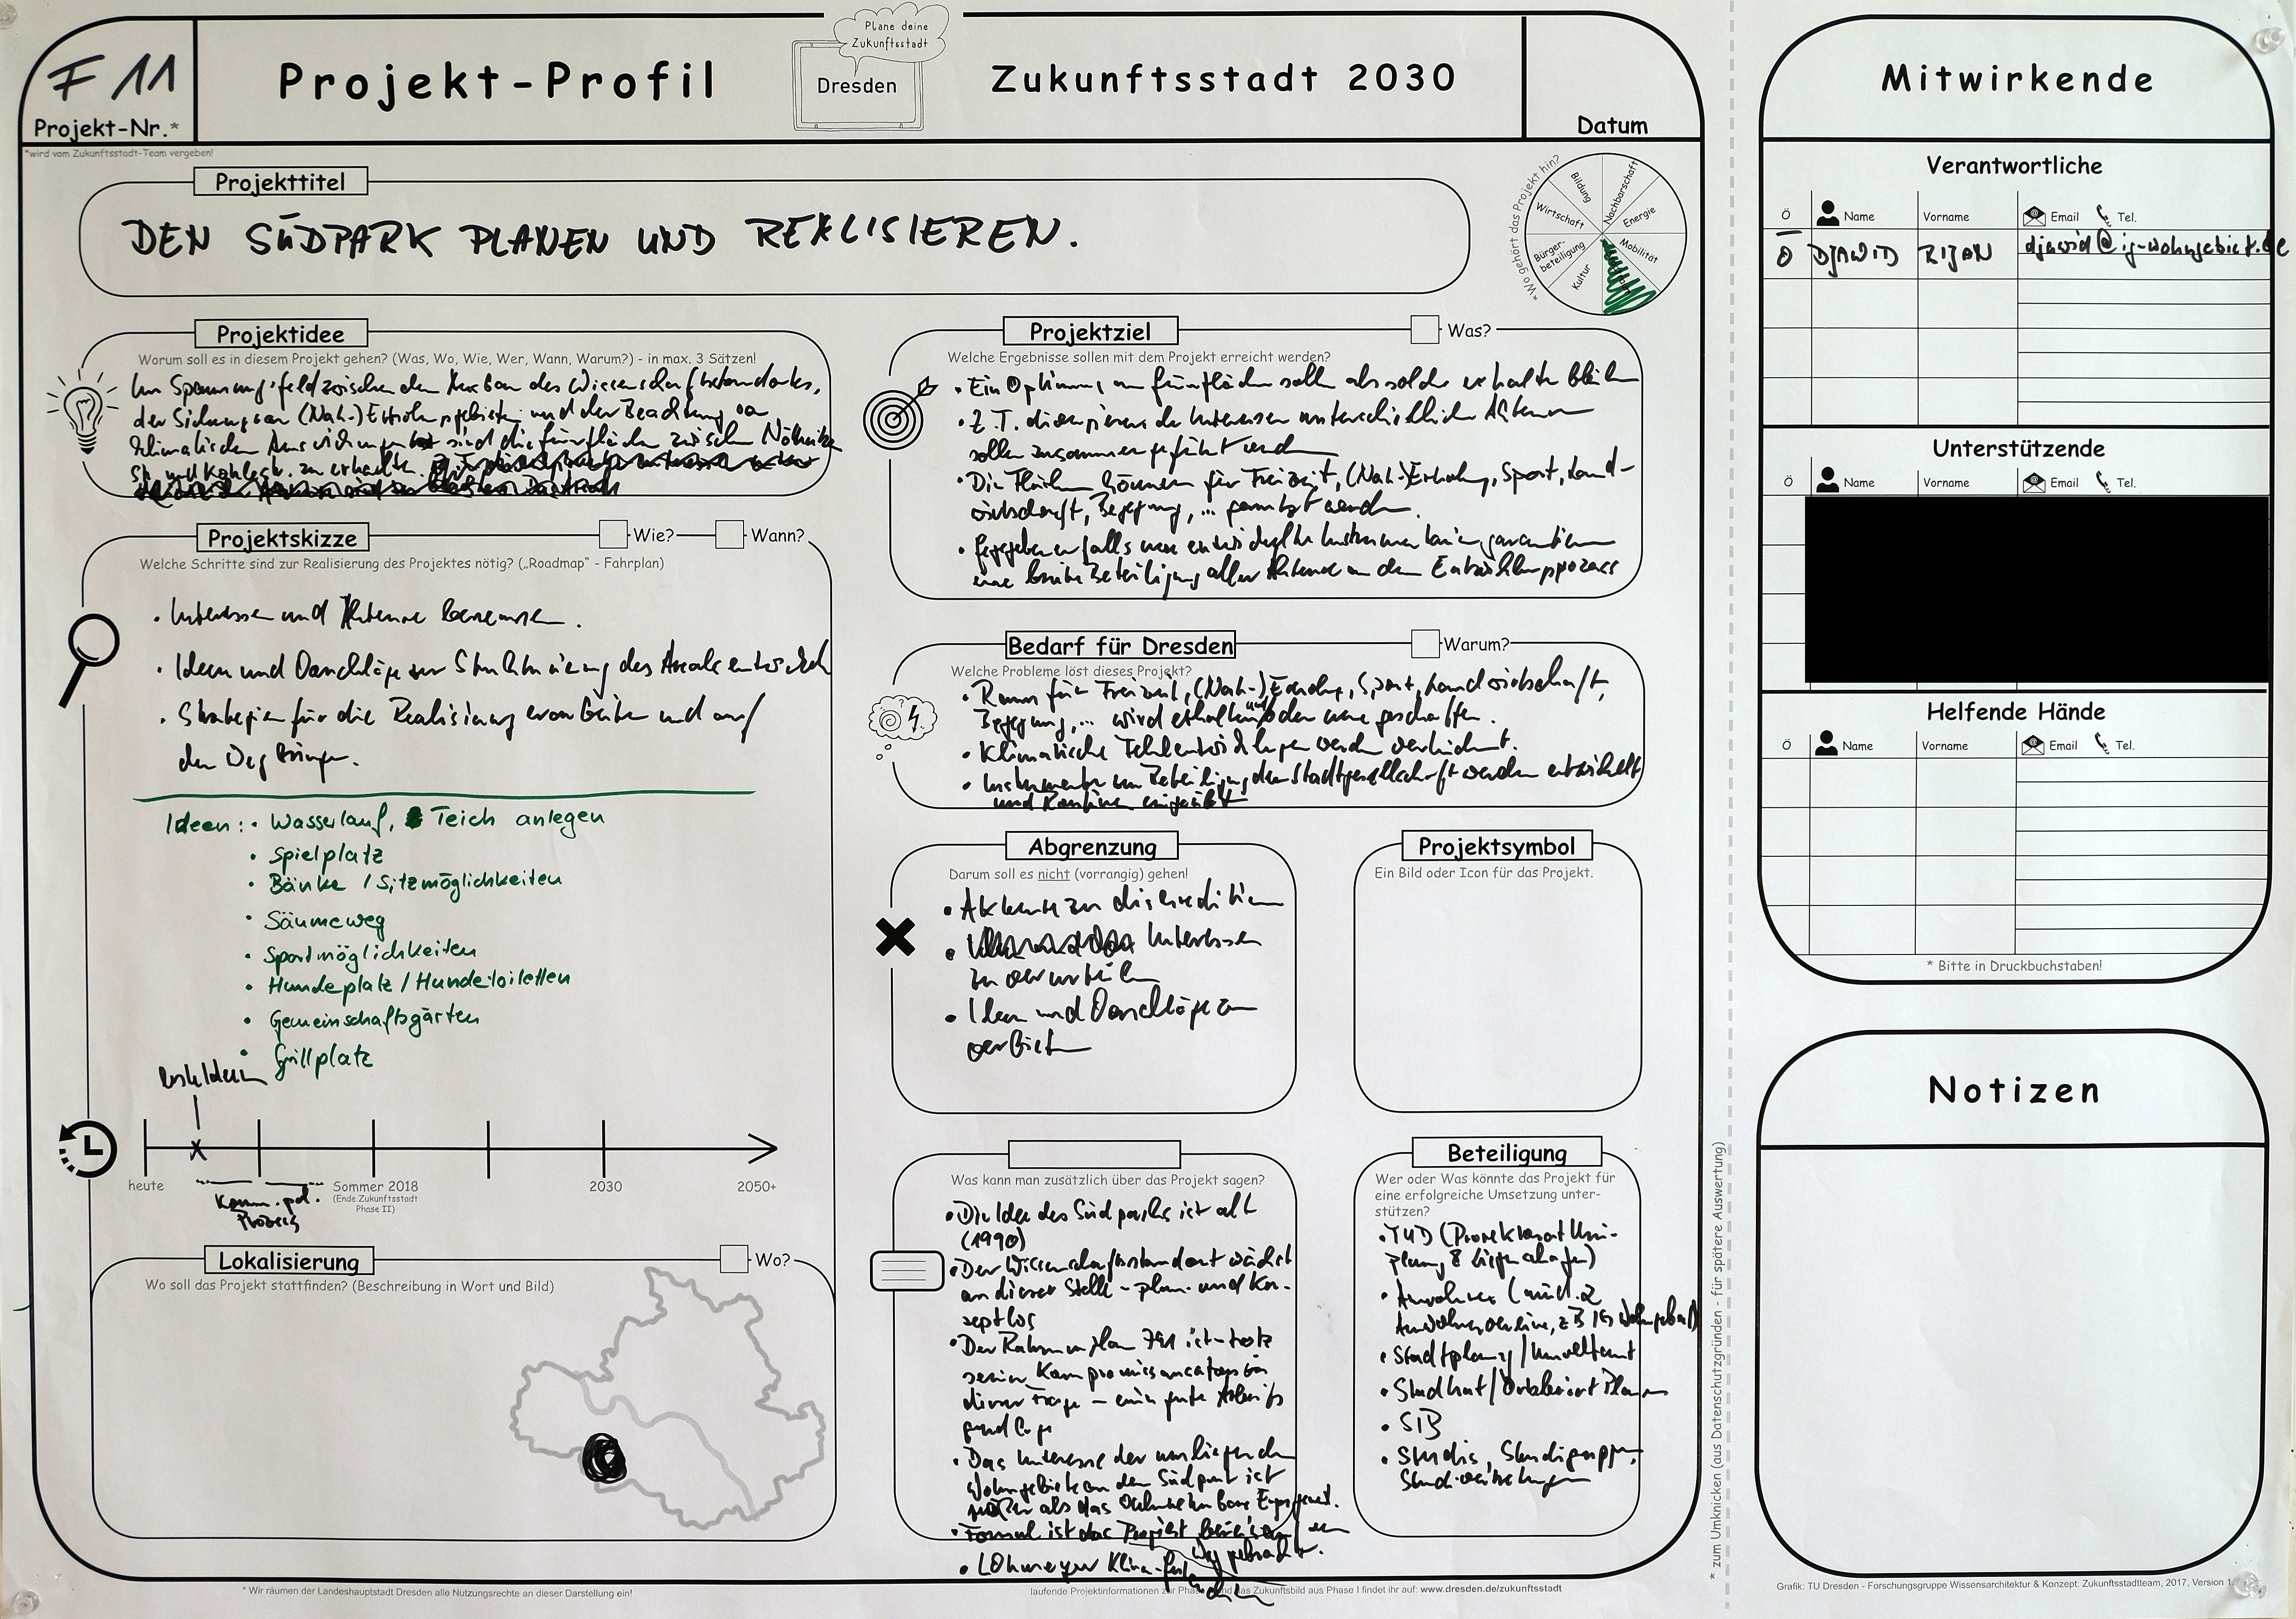 F 11
Projekt-Nr.*
*wird vom Zukunftsstadt-Team vergeben!
Projekt-Profil
Plane deine
Zukunftsstadt
Dresden
Zukunftsstadt 2030
Datum
Projekttitel
DEN SÜDPARK PLANEN UND REALISIEREN.
*Wo gehört das Projekt hin?
Bildung
Nachbarschaft
Wirtschaft
Energie
Bürger-
beteiligung
Mobilität
Kultur
Projektidee
Worum soll es in diesem Projekt gehen? (Was, Wo, Wie, Wer, Wann, Warum?) - in max. 3 Sätzen!
Im Spannungsfeld zwischen dem Ausbau des Wissenschaftsstandortes,
der Sicherung von (Nah-)Erholungsgebieten und der Beachtung von
klimatischen Auswirkungen sind die Grünflächen zwischen Nöthnitzer
Str. und Kohlestr. zu erhalten.
Projektskizze
Wie?
Wann?
Welche Schritte sind zur Realisierung des Projektes nötig? („Roadmap" - Fahrplan)
• Interessen und Akteure benennen.
• Ideen und Vorschläge zur Strukturierung des Areals entwickeln
• Strategien für die Realisierung erarbeiten und auf
den Weg bringen.
Ideen: • Wasserlauf, Teich anlegen
• Spielplatz
• Bänke / Sitzmöglichkeiten
• Säumeweg
• Sportmöglichkeiten
• Hundeplatz / Hundetoiletten
• Gemeinschaftsgärten
• Grillplatz
heute
Sommer 2018
(Ende Zukunftsstadt
Phase II)
2030
2050+
Komm. pol.
Prozess
Lokalisierung
Wo?
Wo soll das Projekt stattfinden? (Beschreibung in Wort und Bild)
Projektziel
Was?
Welche Ergebnisse sollen mit dem Projekt erreicht werden?
• Ein Optimum an Grünflächen sollen als solche erhalten bleiben
• Z.T. divergierende Interessen unterschiedlicher Akteure
sollen zusammengeführt werden
• Die Flächen können für Freizeit, (Nah-)Erholung, Sport, Land-
wirtschaft, Begegnung, ... genutzt werden.
• Gegebenenfalls neu entwickelte Instrumentarien garantieren
eine breite Beteiligung aller Akteure an dem Entwicklungsprozess
Bedarf für Dresden
Warum?
Welche Probleme löst dieses Projekt?
• Raum für Freizeit, (Nah-)Erholung, Sport, Landwirtschaft,
Begegnung, ... wird erhalten und/oder neu geschaffen.
• Klimatische Fehlentwicklungen werden verhindert.
• Instrumente zur Beteiligung der Stadtgesellschaft werden entwickelt
und Routinen eingeübt
Abgrenzung
Darum soll es nicht (vorrangig) gehen!
• Akteure zu diskreditieren
• Interessen
zu verurteilen
• Ideen und Vorschläge zu
verbieten
Projektsymbol
Ein Bild oder Icon für das Projekt.
Was kann man zusätzlich über das Projekt sagen?
• Die Idee des Südparks ist alt
(1990)
• Der Wissenschaftsstandort wächst
an dieser Stelle - plan- und kon-
zeptlos
• Der Rahmenplan 791 ist - trotz
seines Kompromissansatzes in
dieser Frage - eine gute Arbeits
grundlage
• Das Interesse der umliegenden
Wohngebiete an dem Südpark ist
größer als das
• Formal ist das Projekt bereits auf den
Weg gebracht.
• Lohmeyer Klima-
Beteiligung
Wer oder Was könnte das Projekt für
eine erfolgreiche Umsetzung unter-
stützen?
• TUD (Prorektorat Uni-
planung & Liegenschaften)
• Anwohner
Anwohnervereine, z.B. IG Wohngebiet)
• Stadtplanung/Umweltamt
• Stadtrat/Ortsbeirat Plauen
• SIB
• Studis, Studigruppen,
Studivertretungen
* Wir räumen der Landeshauptstadt Dresden alle Nutzungsrechte an dieser Darstellung ein!
laufende Projektinformationen zur Phase das Zukunftsbild aus Phase I findet ihr auf: www.dresden.de/zukunftsstadt
* zum Umknicken (aus Datenschutzgründen - für spätere Auswertung)
Mitwirkende
Verantwortliche
Ö Name Vorname Email Tel.
Ö DJAWID RIJAN djawid@ig-wohngebiet.de
Unterstützende
Ö Name Vorname Email Tel.
Helfende Hände
Ö Name Vorname Email Tel.
* Bitte in Druckbuchstaben!
Notizen
Grafik: TU Dresden - Forschungsgruppe Wissensarchitektur & Konzept: Zukunftsstadtteam, 2017, Version 1